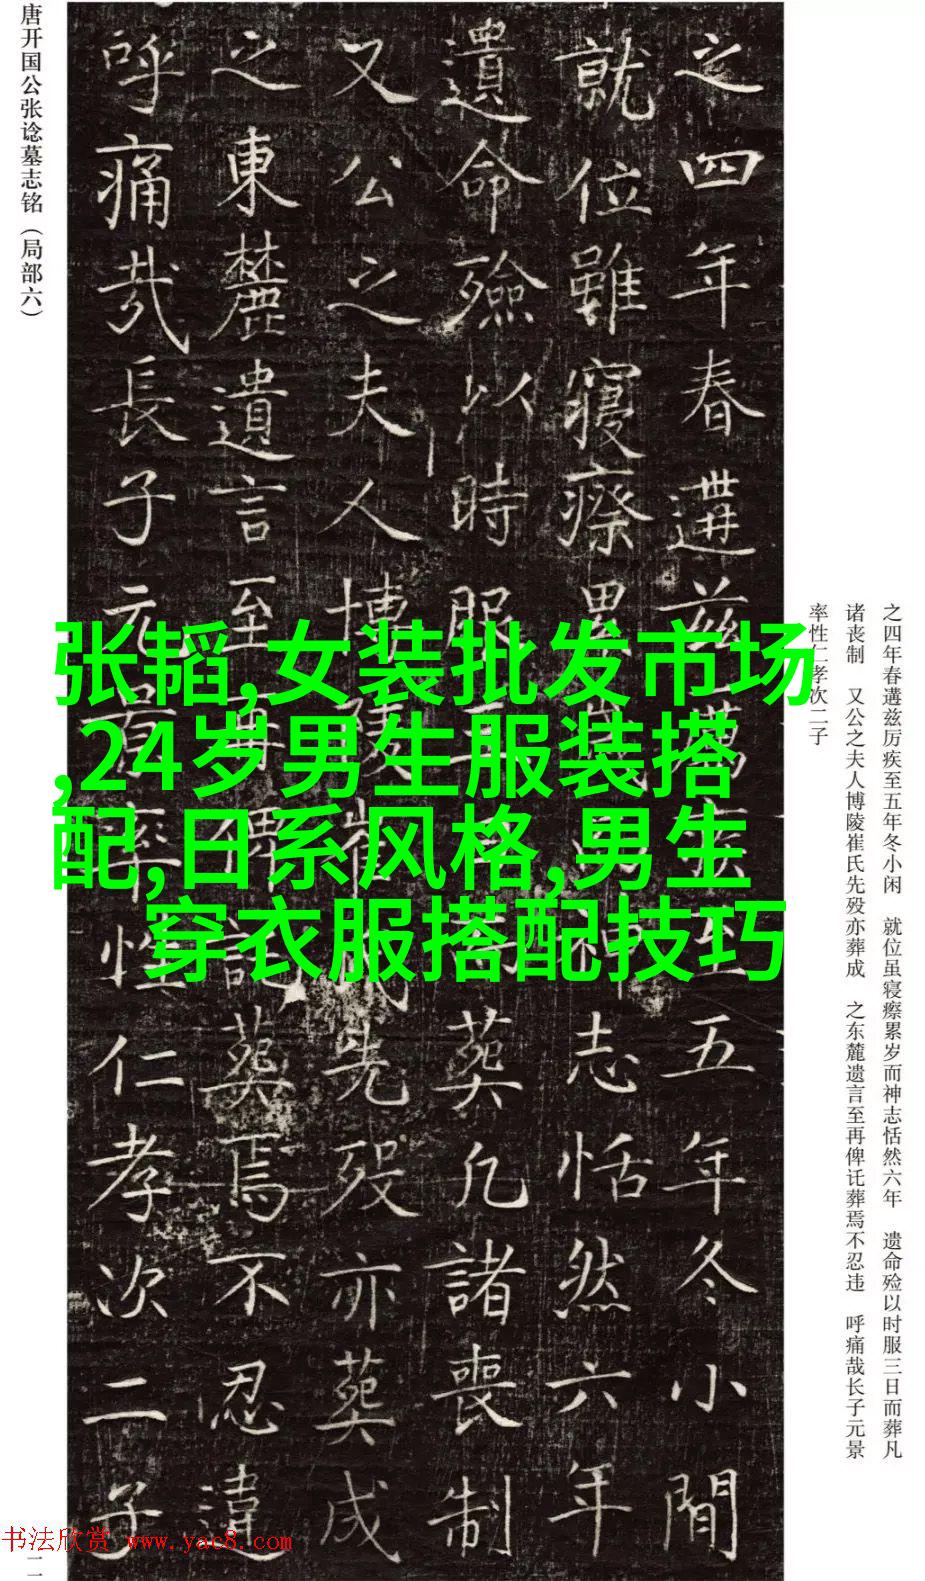 之四年春遘兹厉疾至五年冬小闲　就位虽寝瘵累岁而神志恬然六年　遗命殓以时服三日而葬凡
诸丧制　又公之夫人博陵崔氏先殁亦葬成　之东麓遗言至再俾讬葬焉不忍违　呼痛哉长子元景
率性仁孝次二子
之四年春遘兹厲疾至五年冬小間
就位雖寢瘵累歲而神志恬然六年
遺命殮以時服三日而葬凡諸喪制
又公之夫人博陵崔氏先殁亦葬成
之東麓遺言至再俾託葬焉不忍違
呼痛哉長子元景率性仁孝次二子
唐开国公张谂墓志铭（局部六）
张韬,女装批发市场
,24岁男生服装搭
配,日系风格,男生
穿衣服搭配技巧
书法欣赏 www.yac8.com